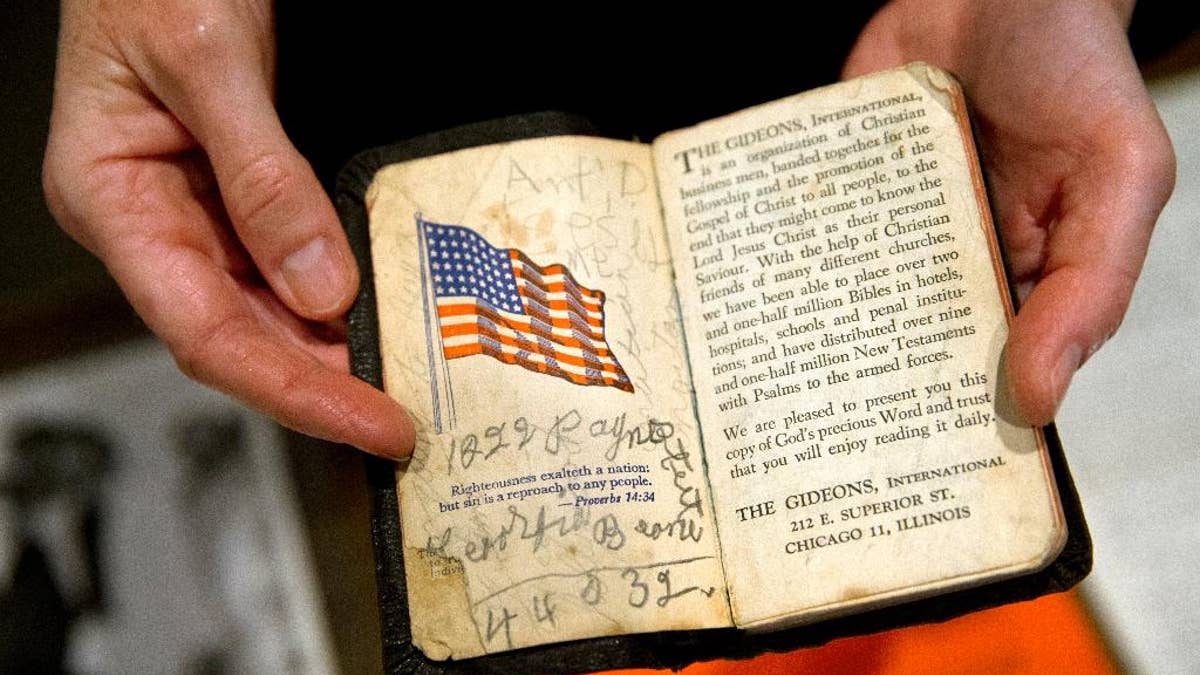 Ant D
1822 Payne
Righteousness exalteth a nation:
but sin is a reproach to any people.
—Proverbs 14:34
Beone
44 0 32
THE GIDEONS, INTERNATIONAL,
is an organization of Christian
business men, banded together for the
fellowship and the promotion of the
Gospel of Christ to all people, to the
end that they might come to know the
Lord Jesus Christ as their personal
Saviour. With the help of Christian
friends of many different churches,
we have been able to place over two
and one-half million Bibles in hotels,
hospitals, schools and penal institu-
tions; and have distributed over nine
and one-half million New Testaments
with Psalms to the armed forces.
We are pleased to present you this
copy of God's precious Word and trust
that you will enjoy reading it daily.
THE GIDEONS, INTERNATIONAL
212 E. SUPERIOR ST.
CHICAGO 11, ILLINOIS